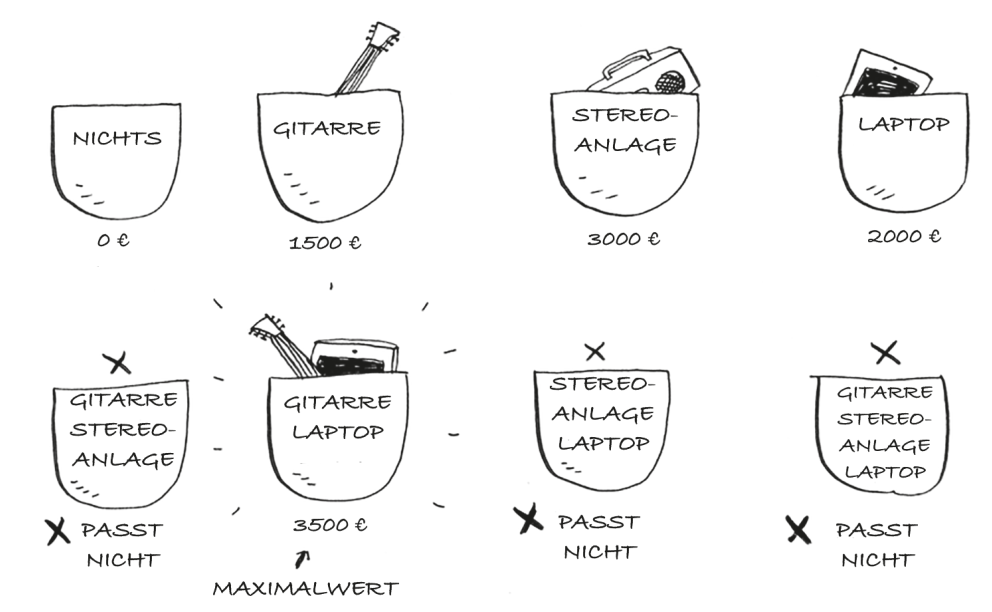 NICHTS
0 €
GITARRE
1500 €
STEREO-
ANLAGE
3000 €
LAPTOP
2000 €
GITARRE
STEREO-
ANLAGE
PASST
NICHT
GITARRE
LAPTOP
3500 €
MAXIMALWERT
STEREO-
ANLAGE
LAPTOP
PASST
NICHT
GITARRE
STEREO-
ANLAGE
LAPTOP
PASST
NICHT